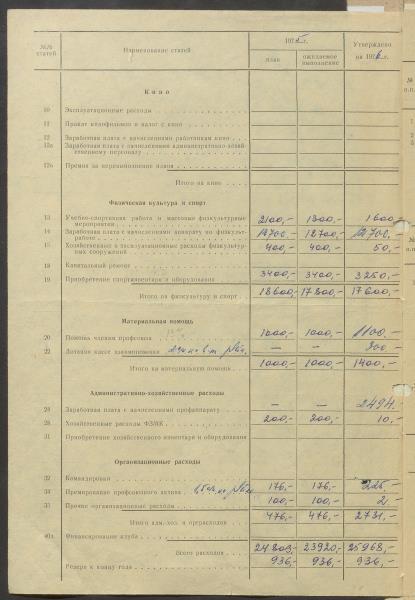 №№ статей
Наименование статей
1975 г.
план
ожидаемое выполнение
Утверждено на 1976 г.
Кино
10 Эксплуатационные расходы
11 Прокат кинофильмов и налог с кино
12 Заработная плата с начислениями работникам кино
12а Заработная плата с начислениями административно-хозяй-
ственному персоналу
12б Премия за перевыполнение плана
Итого на кино
Физическая культура и спорт
13 Учебно-спортивная работа и массовые физкультурные
мероприятия 2100,- 1300,- 1600,-
14 Заработная плата с начислениями аппарату по физкульт-
работе 12700,- 12700,- 12700,-
15 Хозяйственные и эксплуатационные расходы физкультур-
ных сооружений 400,- 400,- 50,-
18 Капитальный ремонт
19 Приобретение спортинвентаря и оборудования 3400,- 3400,- 3250,-
Итого на физкультуру и спорт 18600,- 17800,- 17600,-
Материальная помощь
20 Помощь членам профсоюза 1000,- 1000,- 1100,-
22 Дотация кассе взаимопомощи — — 300,-
Итого на материальную помощь 1000,- 1000,- 1400,-
Административно-хозяйственные расходы
28 Заработная плата с начислениями профаппарату — — 2494,-
Хозяйственные расходы ФЗМК 200,- 200,- 10,-
31 Приобретение хозяйственного инвентаря и оборудования
Организационные расходы
32 Командировки 176,- 176,- 225,-
34 Премирование профсоюзного актива
Прочие организационные расходы 100,- 100,- 2,-
Итого адм.-хоз. и орграсходов 476,- 476,- 2731,-
40а Финансирование клуба
Всего расходов 24803,- 23920,- 25968,-
Резерв к концу года 936,- 936,- 936,-